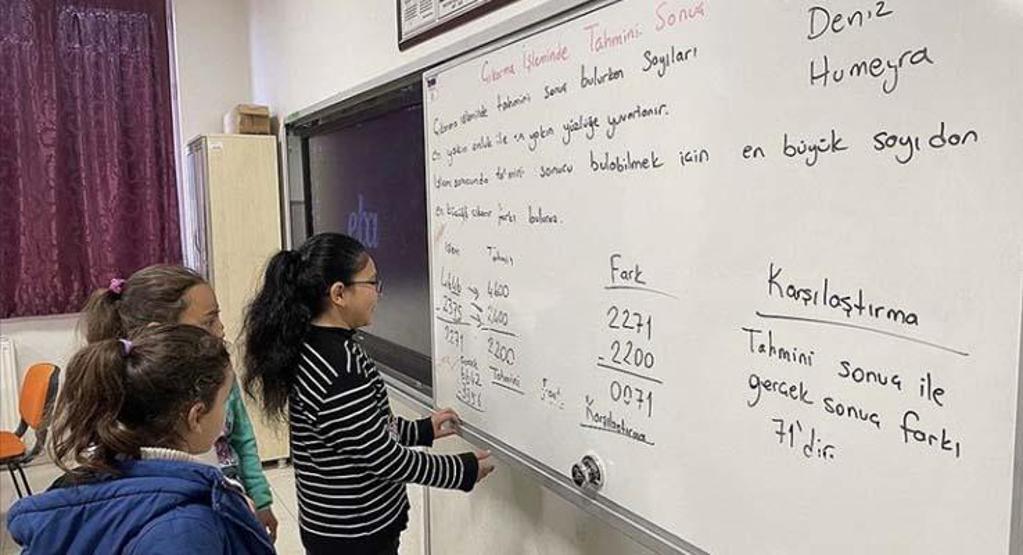 Çıkarma İşleminde Tahmini Sonuç
Deniz
Humeyra
Çıkarma işleminde tahmini sonuç bulurken sayıları
en yakın onluk ile en yakın yüzlüğe yuvarlanır.
İşlem sonucunda tahmini sonucu bulabilmek için en büyük sayıdan
en küçük çıkarır farkı bulunur.
İşlem Tahmin
4646 → 4600
- 2375 → 2400
2271 2200
Gerçek Tahmini
Fark
2271
- 2200
0071
Karşılaştırma
Karşılaştırma
Tahmini sonuç ile
gerçek sonuç farkı
71'dir.
eba